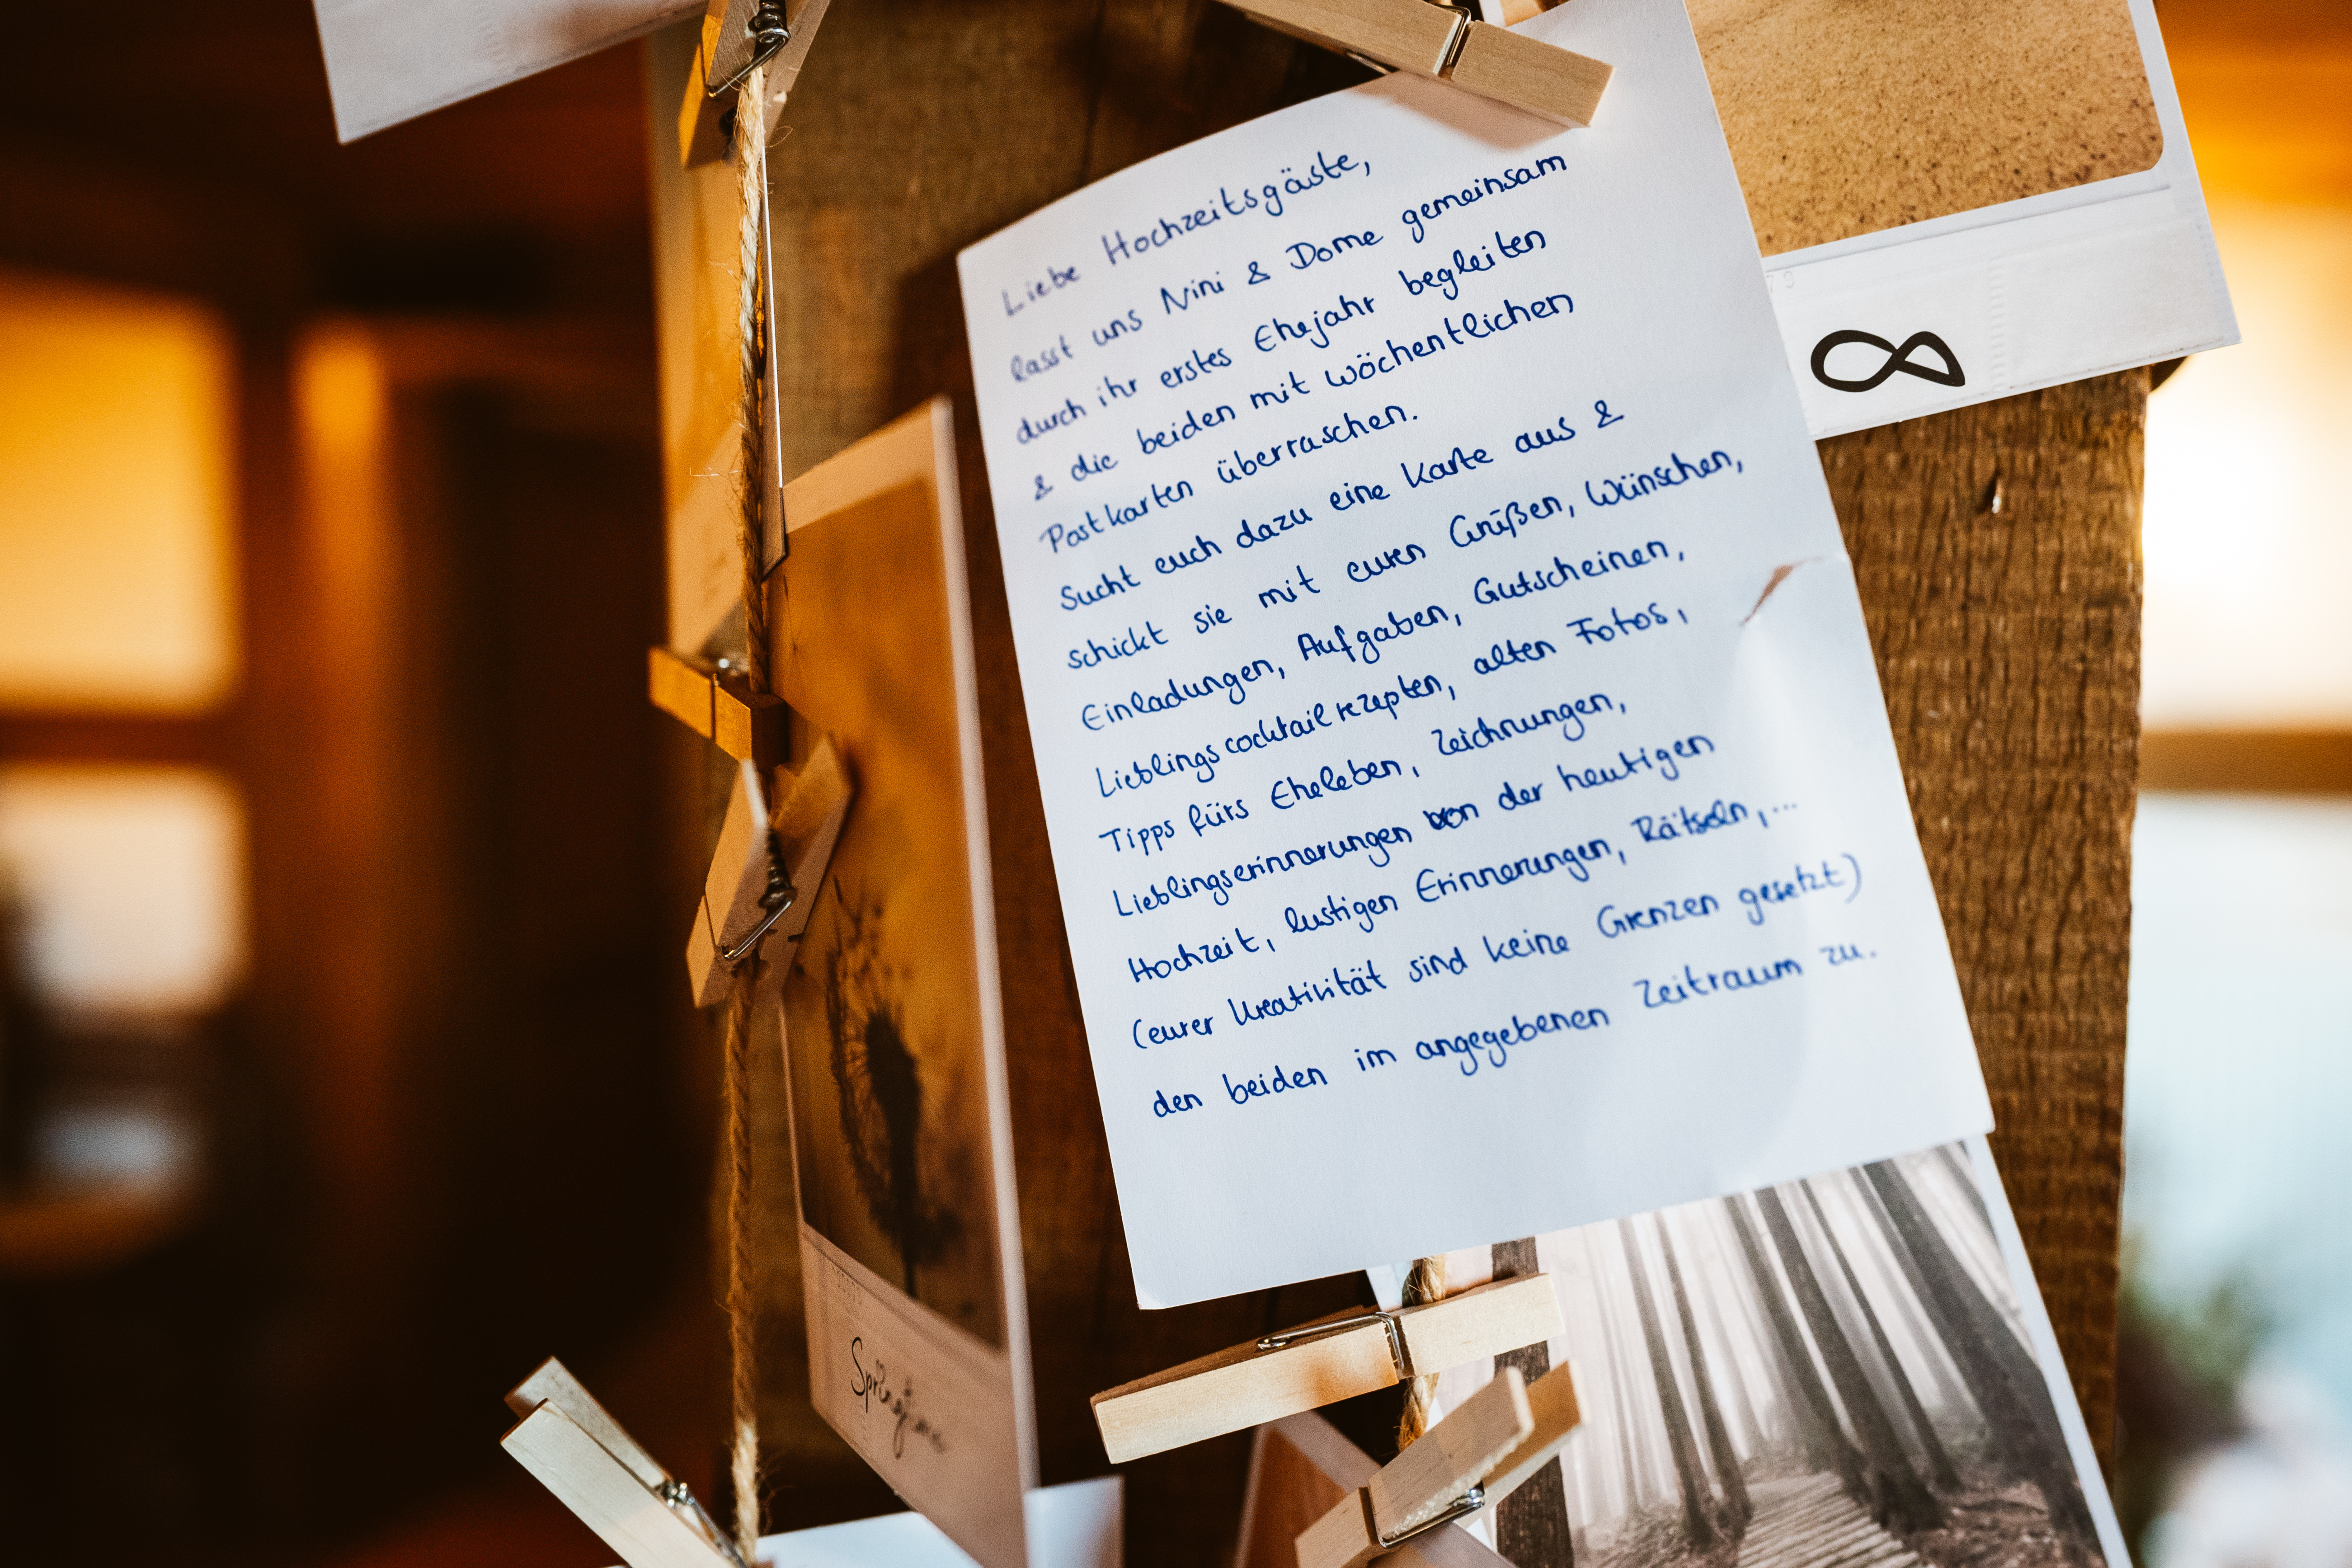 Liebe Hochzeitsgäste,
lasst uns Nini & Dome gemeinsam
durch ihr erstes Ehejahr begleiten
& die beiden mit wöchentlichen
Postkarten überraschen.
Sucht euch dazu eine Karte aus &
schickt sie mit euren Grüßen, Wünschen,
Einladungen, Aufgaben, Gutscheinen,
Lieblingscocktailrezepten, alten Fotos,
Tipps fürs Eheleben, Zeichnungen,
Lieblingserinnerungen von der heutigen
Hochzeit, lustigen Erinnerungen, Rätseln,...
(eurer Kreativität sind keine Grenzen gesetzt)
den beiden im angegebenen Zeitraum zu.
Springtime